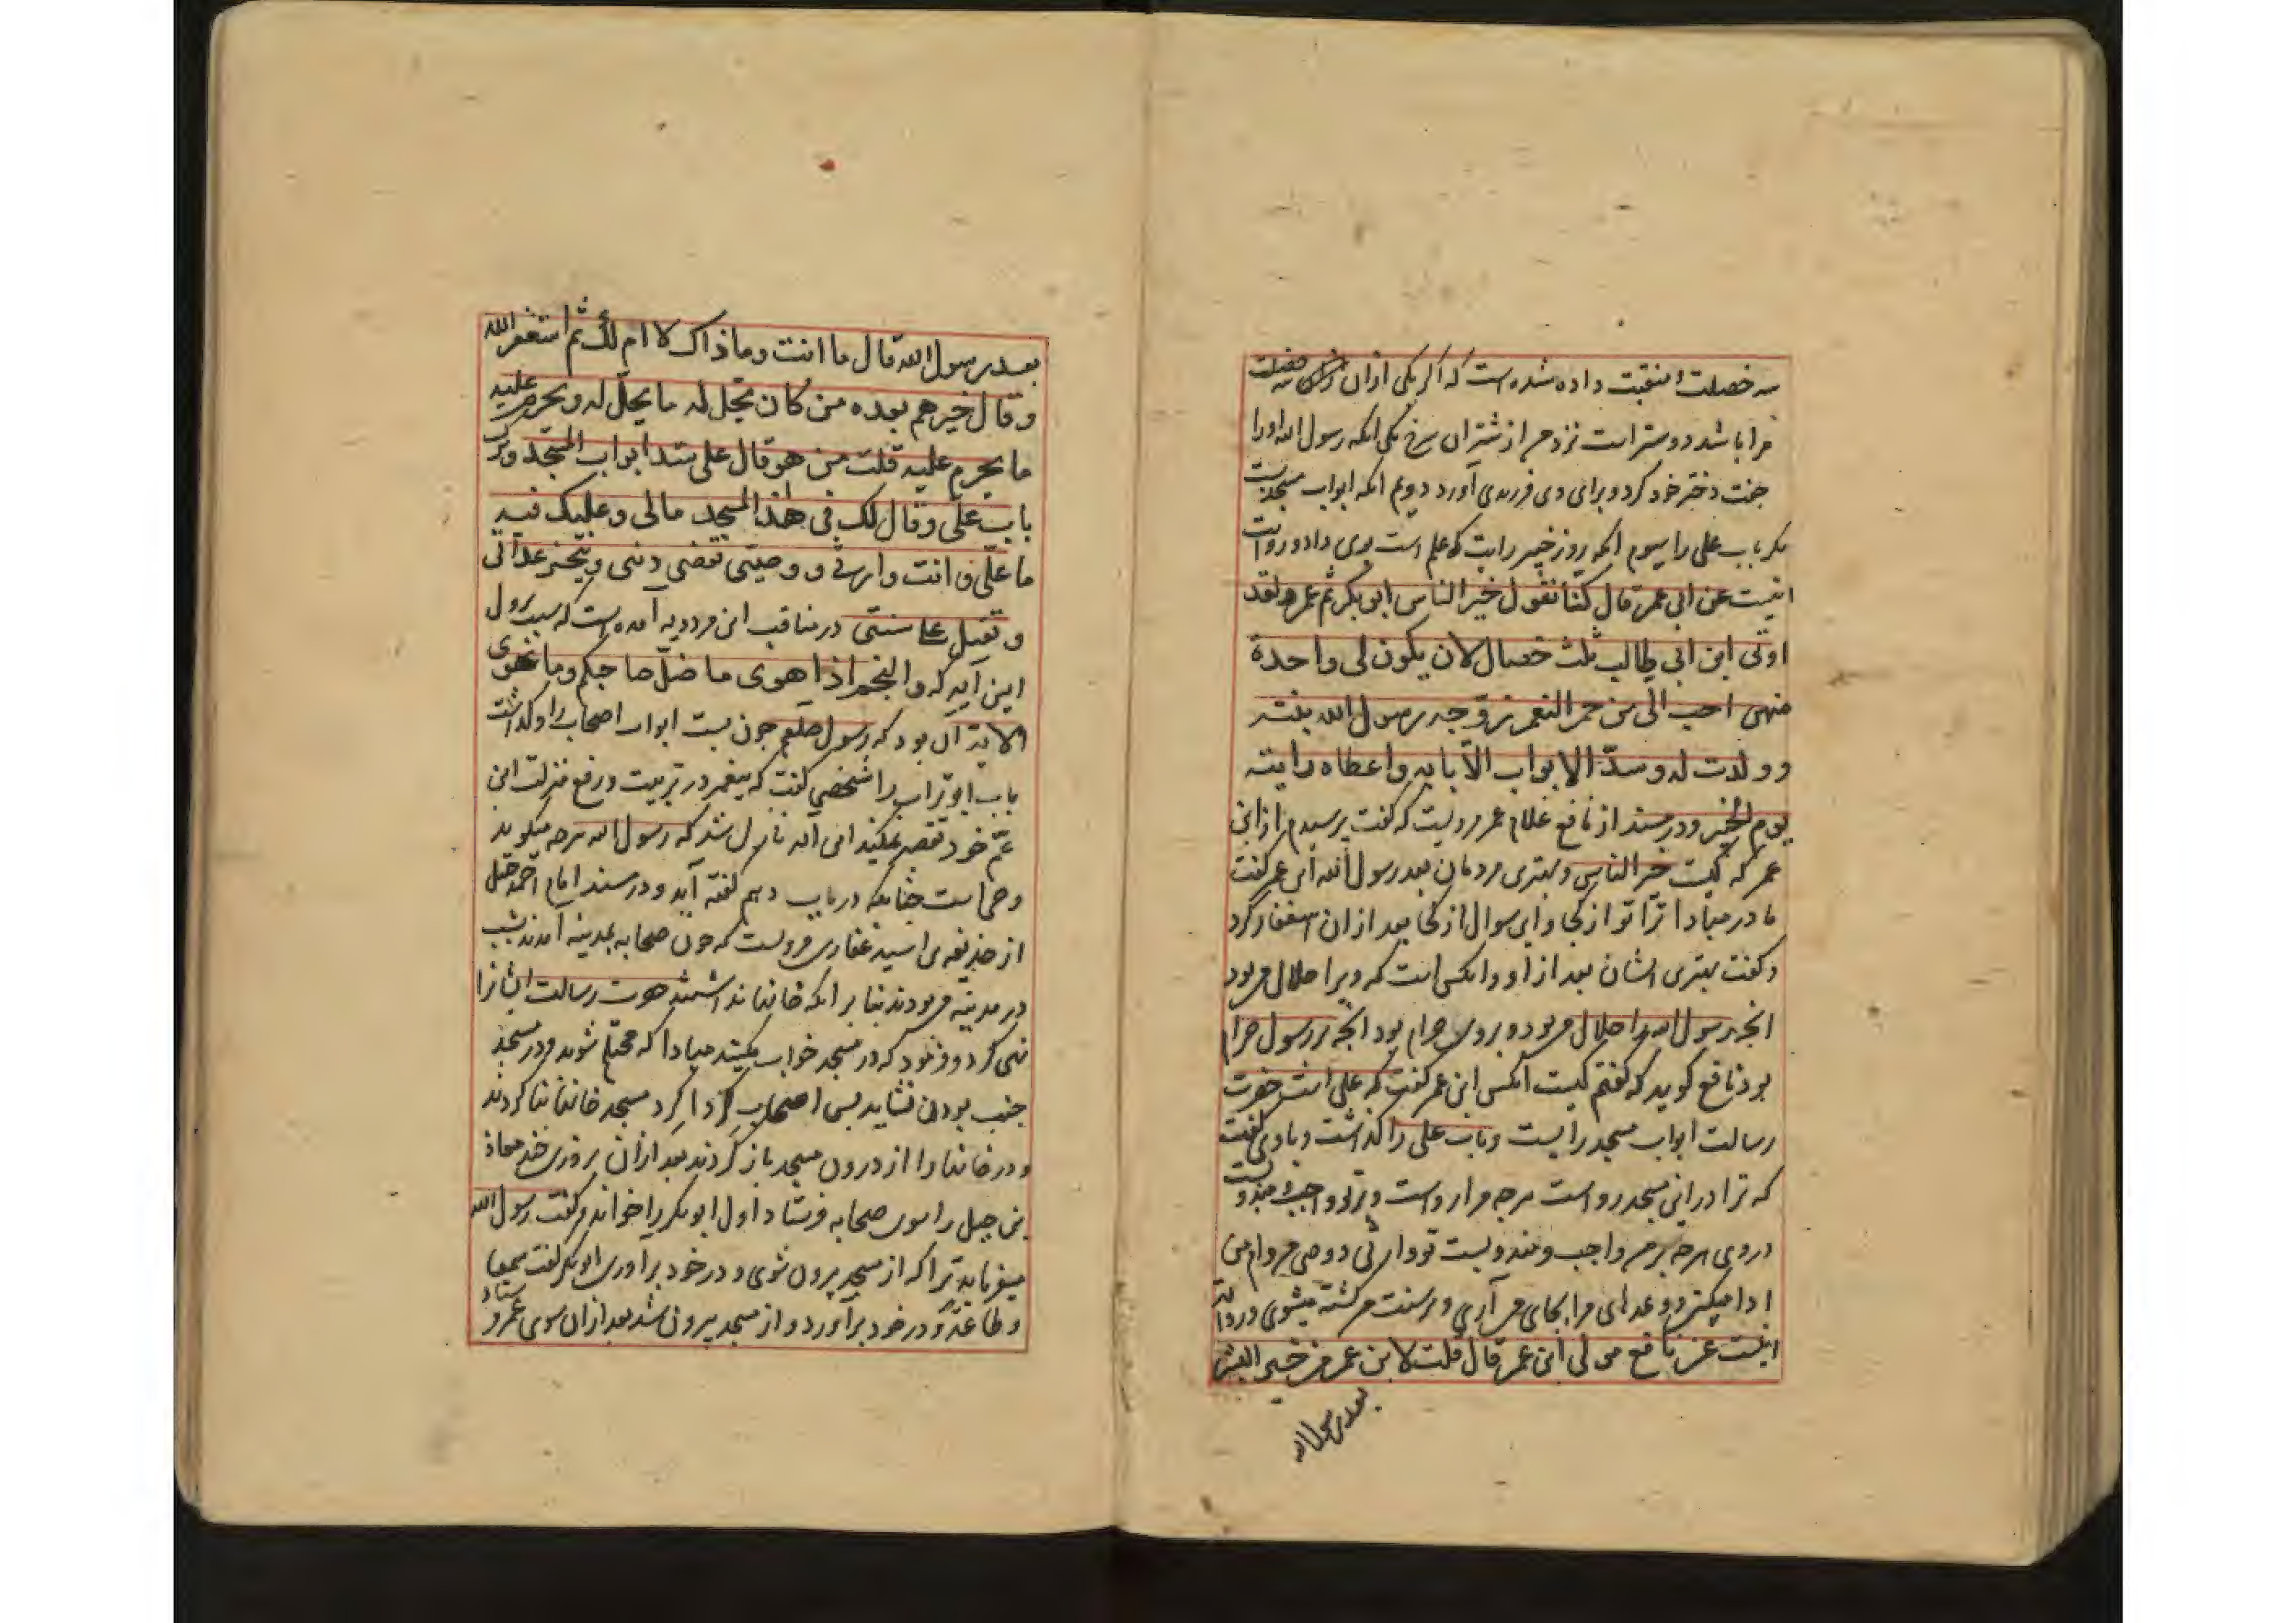 سه خصلت و منقبت داده شده است که اگر یکی ازان سه خصلت
مرا باشد دوستر است نزد من از شتران سرخ یکی انکه رسول الله اورا
جفت دختر خود کرد و برای وی فرزندی آورد دویم انکه ابواب مسجد بست
مکر باب علی را سیوم انکه روز خیبر رایت که علم است بوی داد و روایت
اینست عن ابن عمر قال کنا نقول خیر الناس ابو بکر ثم عمر و لقد
اوتی ابن ابی طالب ثلث خصال لان یکون لی واحدة
منهن احب الی من حمر النعم زوجه رسول الله بنته
و ولدت له و سدّ الابواب الّا بابه و اعطاه رایته
یوم الخیبر و در مسند از نافع غلام عمر مرویست که گفت پرسیدم از ابن
عمر که کیست خیر الناس و بهتری مردمان بعد رسول الله ابن عمر گفت
مادر مبادا ترا تو از کجا و این سوال از کجا بعد ازان استغفار کرد
و گفت بهتری ایشان بعد از او وانکس است که ویرا حلال می بود
انچه رسول الله را حلال می بود و بروی حرام بود انچه بر رسول حرام
بود نافع گوید که گفتم کیست انکس ابن عمر گفت که علی است حضرت
رسالت ابواب مسجد را بست و باب علی را گذاشت و با وی گفت
که ترا در این مسجد رواست هرچه مرا رواست و برتو واجب
در وی هرچه بر من واجب و تو وارثی و وصی من وام من
ادا میکنی و وعدهای مرا بجای می آری و بر سنت من کشته میشوی و روایت
اینست عن نافع مولی ابن عمر قال قلت لابن عمر من خیر البشر
بعد رسول الله
بعد رسول الله قال ما انت و ما ذاک لا ام لک ثم استغفر الله
و قال خیرهم بعده من کان یحل له ما یحلّ له و یحرم علیه
ما یحرم علیه قلت من هو قال علی سد ابواب المسجد و ترک
باب علی و قال لک فی هذا المسجد مالی و علیک فیه
ما علیّ و انت وارثی و وصیتی تقضی دینی و تنجز عداتی
و تقتل علی سنتی در مناقب ابن مردویه آمده است که سبب نزول
این آیه که و النجم اذا هوی ما ضلّ صاحبکم و ما غوی
الایه آن بود که رسول صلعم چون بست ابواب اصحاب را و گذاشت
باب ابو تراب را شخصی گفت که پیغمبر در تربیت و رفع منزلت ابن
عمّ خود تقصیر نمیکند این آیه نازل شد که رسول الله هرچه میگوید
وحی است چنانچه در باب دهم گفته آید و در مسند امام احمد حنبل
از حذیفه بن اسید غفاری مرویست که چون صحابه بمدینه آمدند بشب
در مدینه می بودند بنا بر انکه خانها نداشتند حضرت رسالت ایشانرا
نهی کرد و فرمود که در مسجد خواب مکنید مبادا که محتلم شوید و در مسجد
جنب بودن نشاید پس اصحاب گرداگرد مسجد خانها بنا کردند
و در خانها را از درون مسجد باز کردند بعد ازان روزی حضرت معاذ
بن جبل را سوی صحابه فرستاد اول ابو بکر را خواند و گفت رسول الله
میفرماید ترا که از مسجد بیرون شوی و در خود براوری ابو بکر گفت سمعا
و طاعة و در خود برآورد و از مسجد بیرون شد بعد ازان سوی عمر فرستاد